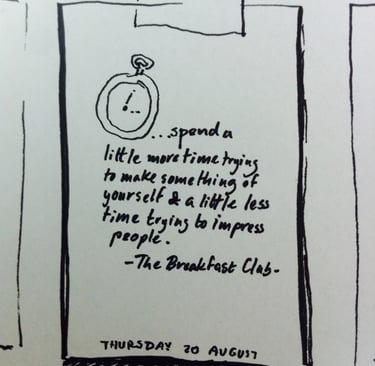 ...spend a
little more time trying
to make something of
yourself & a little less
time trying to impress
people.
-The Breakfast Club-
THURSDAY 20 AUGUST